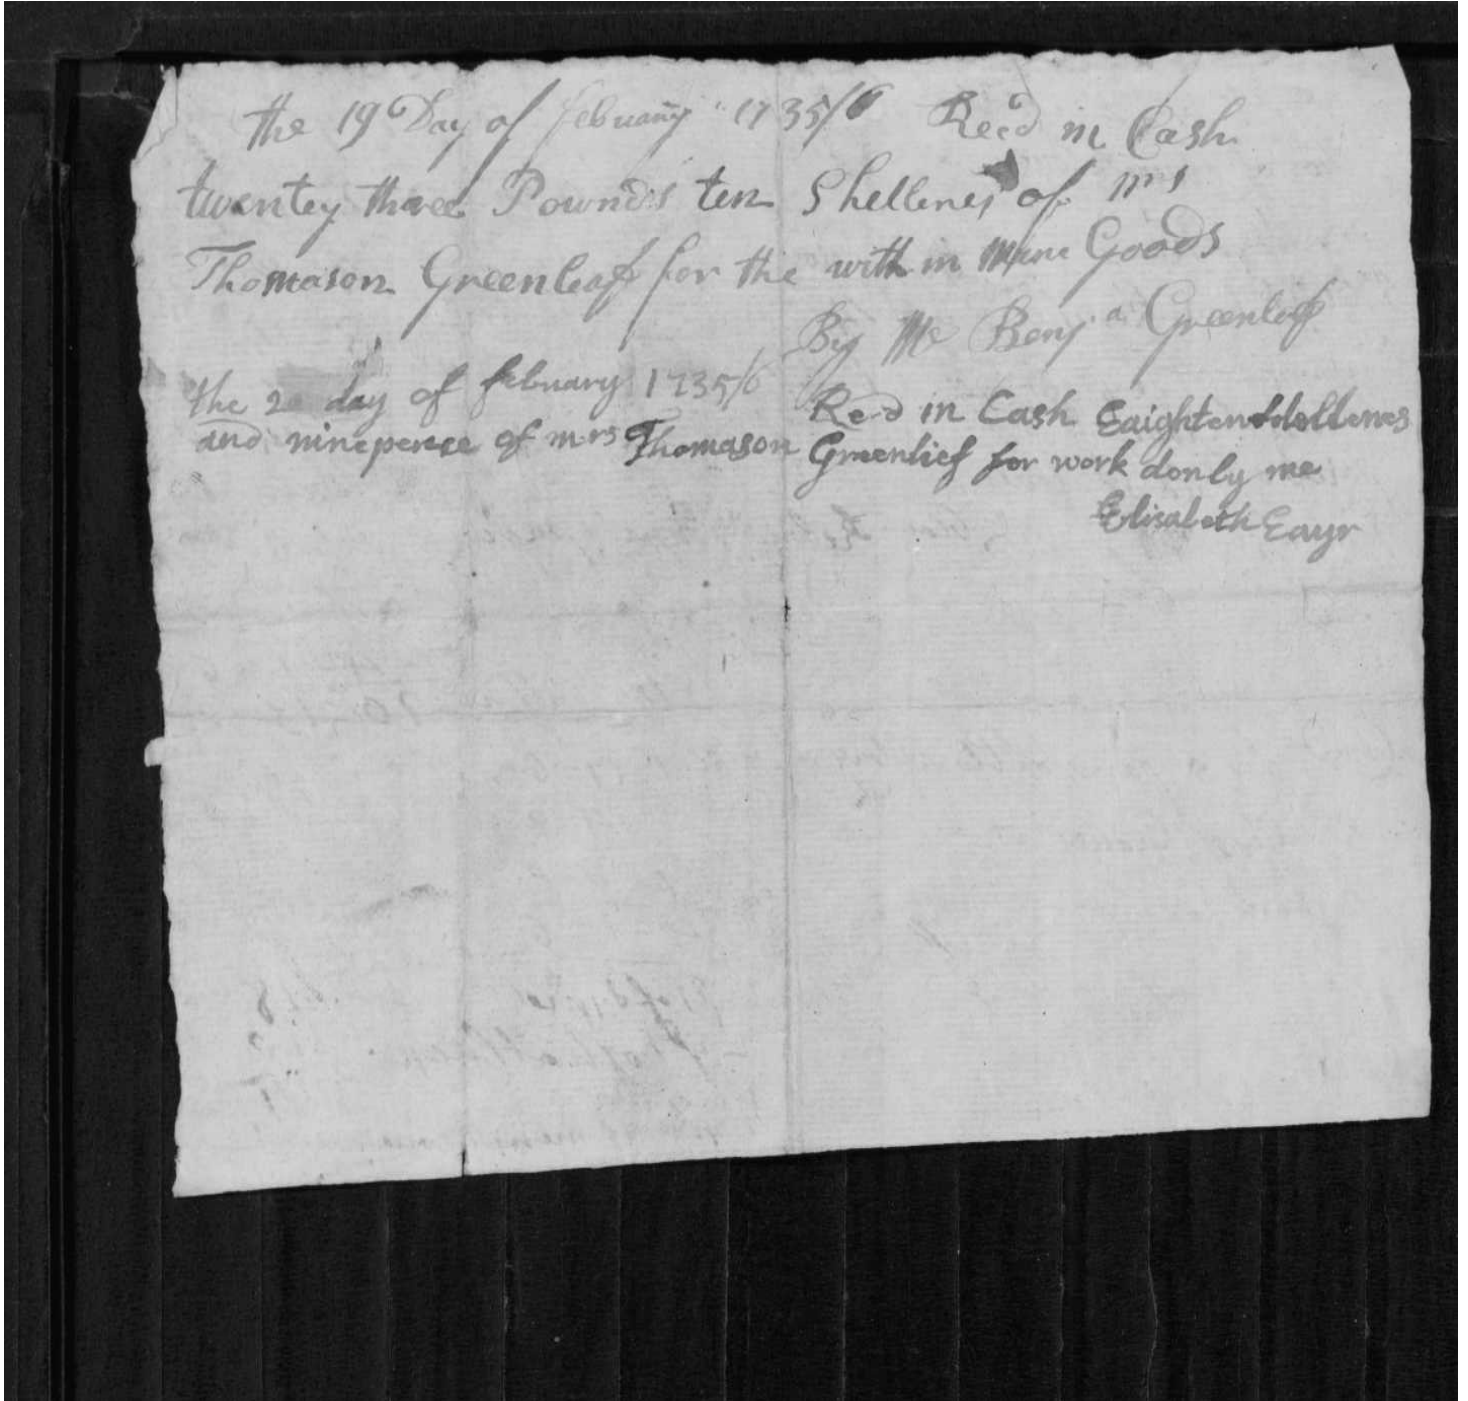 the 19 Day of february 1735/6 Recd in Cash
twentey three Pownds ten Shellenes of mrs
Thomason Greenleaf for the with in Goods
By Me Benja Greenleaf
the 2 day of february 1735/6 Recd in Cash Eaighten shellenes
and ninepence of mrs Thomason Greenlief for work don by me
Elisabeth Eayr